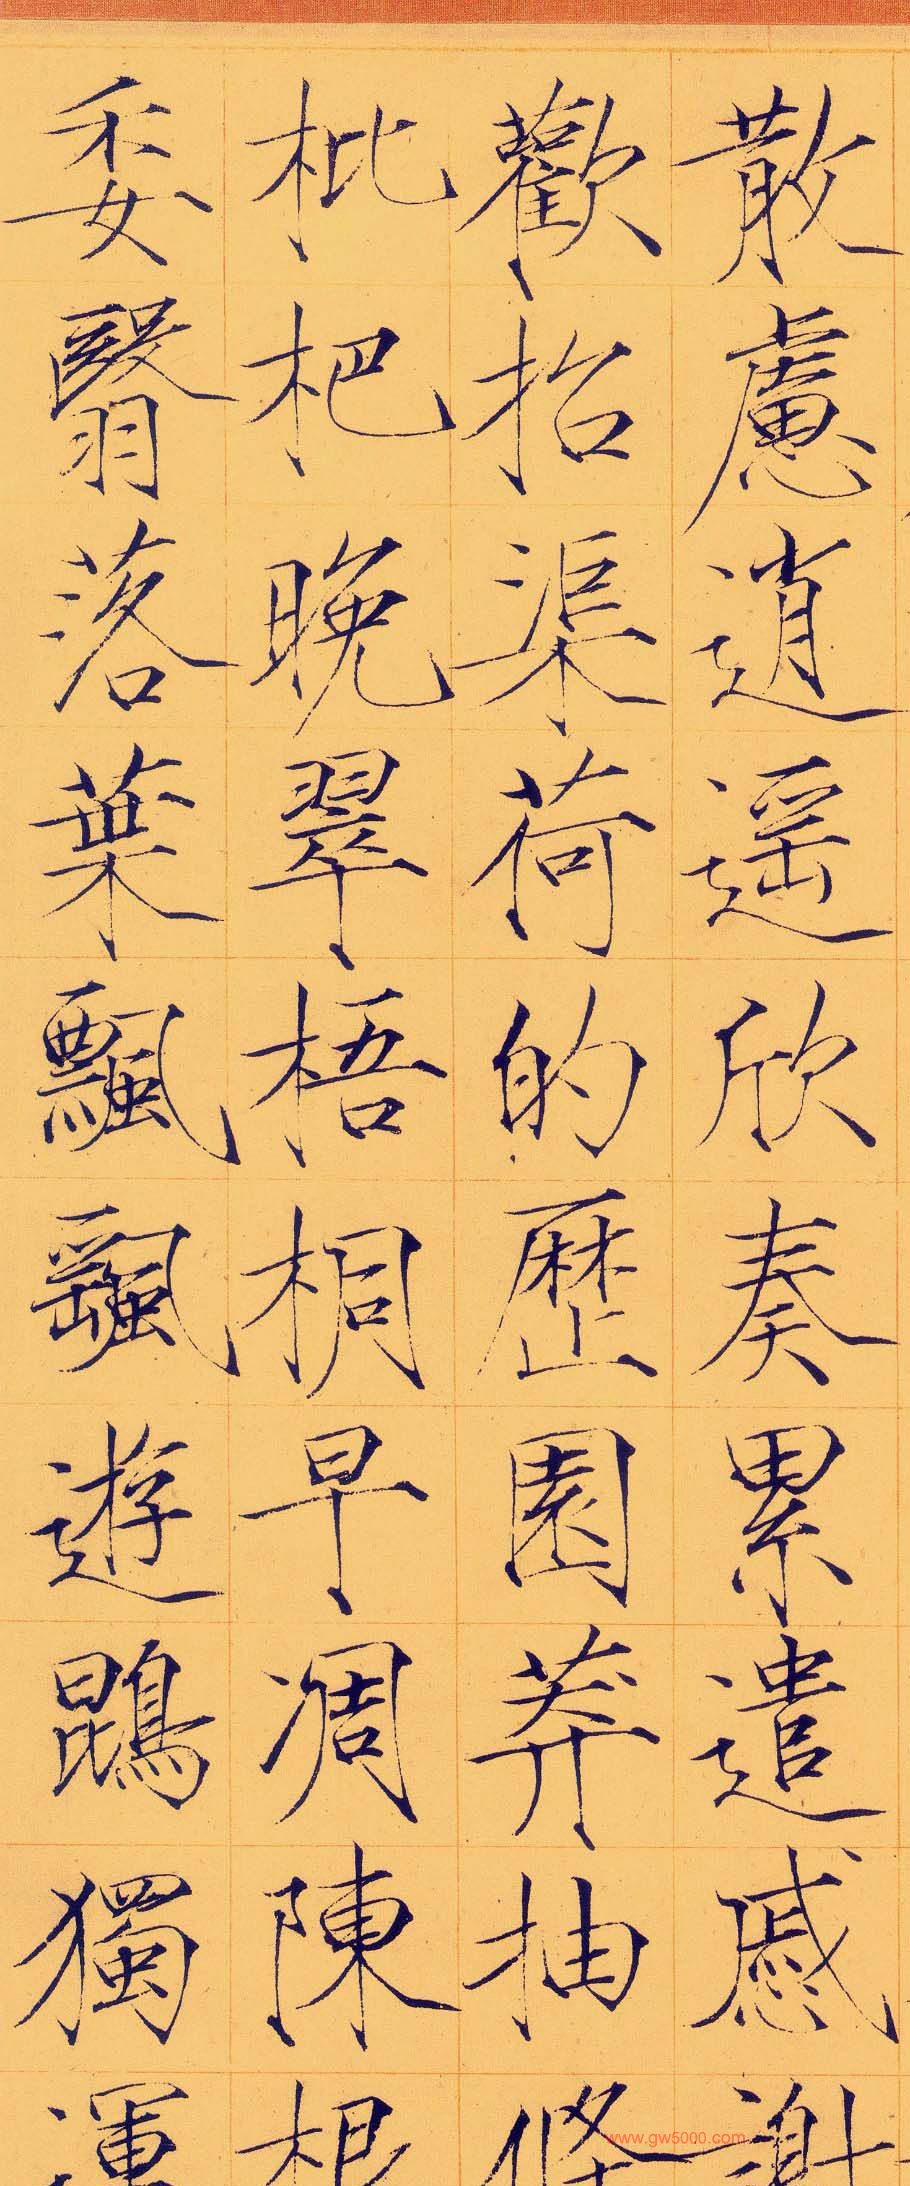 散慮逍遥欣奏累遣慼謝
歡招渠荷的歷園莽抽條
枇杷晚翠梧桐早凋陳根
委翳落葉飄颻遊鵾獨運
www.gw5000.com